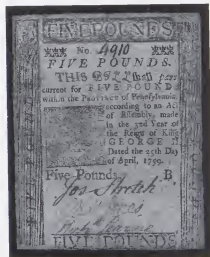 FIVE POUNDS
No. 4910
FIVE POUNDS.
THIS Bill shall pass
current for FIVE POUNDS
within the Province of Pennsylvania,
according to an Act
of Assembly, made
in the 32d Year of
the Reign of King
GEORGE II
Dated the 25th Day
of April, 1759.
Five Pounds. B
FIVE POUNDS